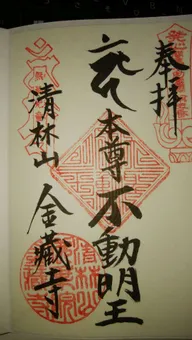 奉拝
本尊 不動明王
清林山 金蔵寺